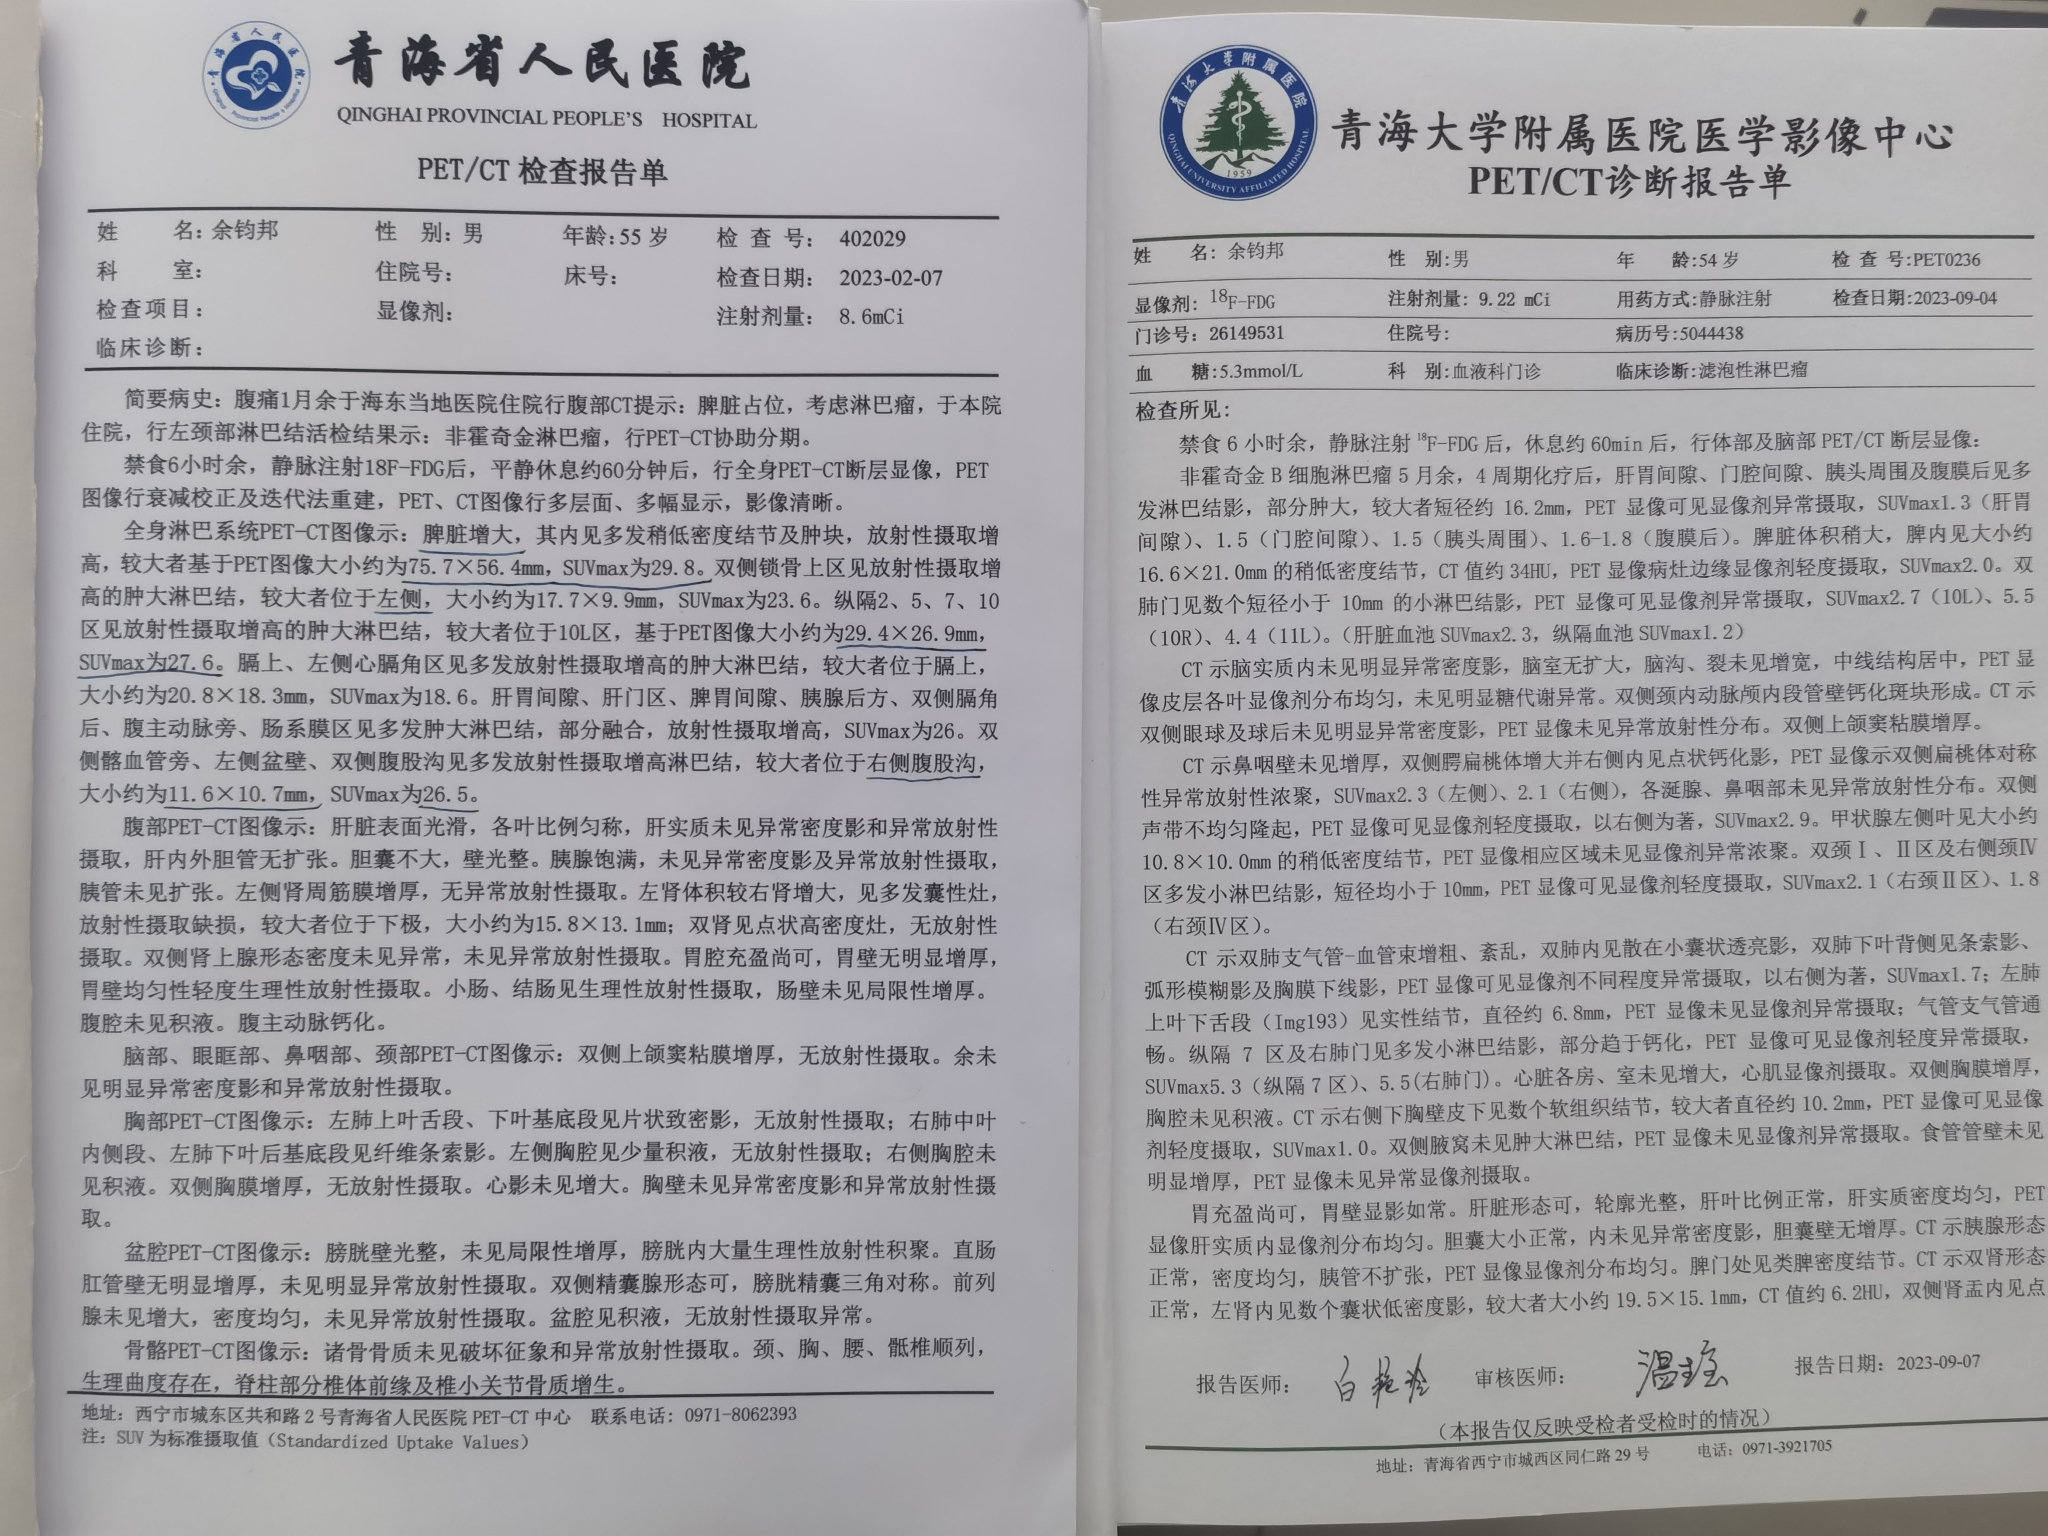 青海省人民医院
QINGHAI PROVINCIAL PEOPLE'S HOSPITAL
PET/CT 检查报告单
姓 名：余钧邦 性 别：男 年龄：55 岁 检 查 号： 402029
科 室： 住院号： 床号： 检查日期： 2023-02-07
检查项目： 显像剂： 注射剂量： 8.6mCi
临床诊断：
简要病史：腹痛1月余于海东当地医院住院行腹部CT提示：脾脏占位，考虑淋巴瘤，于本院
住院，行左颈部淋巴结活检结果示：非霍奇金淋巴瘤，行PET-CT协助分期。
禁食6小时余，静脉注射18F-FDG后，平静休息约60分钟后，行全身PET-CT断层显像，PET
图像行衰减校正及迭代法重建，PET、CT图像行多层面、多幅显示，影像清晰。
全身淋巴系统PET-CT图像示：脾脏增大，其内见多发稍低密度结节及肿块，放射性摄取增
高，较大者基于PET图像大小约为75.7×56.4mm，SUVmax为29.8。双侧锁骨上区见放射性摄取增
高的肿大淋巴结，较大者位于左侧，大小约为17.7×9.9mm，SUVmax为23.6。纵隔2、5、7、10
区见放射性摄取增高的肿大淋巴结，较大者位于10L区，基于PET图像大小约为29.4×26.9mm，
SUVmax为27.6。膈上、左侧心膈角区见多发放射性摄取增高的肿大淋巴结，较大者位于膈上，
大小约为20.8×18.3mm，SUVmax为18.6。肝胃间隙、肝门区、脾胃间隙、胰腺后方、双侧膈角
后、腹主动脉旁、肠系膜区见多发肿大淋巴结，部分融合，放射性摄取增高，SUVmax为26。双
侧髂血管旁、左侧盆壁、双侧腹股沟见多发放射性摄取增高淋巴结，较大者位于右侧腹股沟，
大小约为11.6×10.7mm，SUVmax为26.5。
腹部PET-CT图像示：肝脏表面光滑，各叶比例匀称，肝实质未见异常密度影和异常放射性
摄取，肝内外胆管无扩张。胆囊不大，壁光整。胰腺饱满，未见异常密度影及异常放射性摄取，
胰管未见扩张。左侧肾周筋膜增厚，无异常放射性摄取。左肾体积较右肾增大，见多发囊性灶，
放射性摄取缺损，较大者位于下极，大小约为15.8×13.1mm；双肾见点状高密度灶，无放射性
摄取。双侧肾上腺形态密度未见异常，未见异常放射性摄取。胃腔充盈尚可，胃壁无明显增厚，
胃壁均匀性轻度生理性放射性摄取。小肠、结肠见生理性放射性摄取，肠壁未见局限性增厚。
腹腔未见积液。腹主动脉钙化。
脑部、眼眶部、鼻咽部、颈部PET-CT图像示：双侧上颌窦粘膜增厚，无放射性摄取。余未
见明显异常密度影和异常放射性摄取。
胸部PET-CT图像示：左肺上叶舌段、下叶基底段见片状致密影，无放射性摄取；右肺中叶
内侧段、左肺下叶后基底段见纤维条索影。左侧胸腔见少量积液，无放射性摄取；右侧胸腔未
见积液。双侧胸膜增厚，无放射性摄取。心影未见增大。胸壁未见异常密度影和异常放射性摄
取。
盆腔PET-CT图像示：膀胱壁光整，未见局限性增厚，膀胱内大量生理性放射性积聚。直肠
肛管壁无明显增厚，未见明显异常放射性摄取。双侧精囊腺形态可，膀胱精囊三角对称。前列
腺未见增大，密度均匀，未见异常放射性摄取。盆腔见积液，无放射性摄取异常。
骨骼PET-CT图像示：诸骨骨质未见破坏征象和异常放射性摄取。颈、胸、腰、骶椎顺列，
生理曲度存在，脊柱部分椎体前缘及椎小关节骨质增生。
地址：西宁市城东区共和路 2 号青海省人民医院 PET-CT 中心 联系电话：0971-8062393
注：SUV 为标准摄取值（Standardized Uptake Values）
青海大学附属医院
QINGHAI UNIVERSITY AFFILIATED HOSPITAL
1959
青海大学附属医院医学影像中心
PET/CT诊断报告单
姓 名：余钧邦 性 别:男 年 龄:54 岁 检 查 号:PET0236
显像剂：18F-FDG 注射剂量：9.22 mCi 用药方式:静脉注射 检查日期:2023-09-04
门诊号：26149531 住院号： 病历号:5044438
血 糖:5.3mmol/L 科 别:血液科门诊 临床诊断:滤泡性淋巴瘤
检查所见：
禁食 6 小时余，静脉注射 18F-FDG 后，休息约 60min 后，行体部及脑部 PET/CT 断层显像：
非霍奇金 B 细胞淋巴瘤 5 月余，4 周期化疗后，肝胃间隙、门腔间隙、胰头周围及腹膜后见多
发淋巴结影，部分肿大，较大者短径约 16.2mm，PET 显像可见显像剂异常摄取，SUVmax1.3（肝胃
间隙）、1.5（门腔间隙）、1.5（胰头周围）、1.6-1.8（腹膜后）。脾脏体积稍大，脾内见大小约
16.6×21.0mm 的稍低密度结节，CT 值约 34HU，PET 显像病灶边缘显像剂轻度摄取，SUVmax2.0。双
肺门见数个短径小于 10mm 的小淋巴结影，PET 显像可见显像剂异常摄取，SUVmax2.7（10L）、5.5
（10R）、4.4（11L）。（肝脏血池 SUVmax2.3，纵隔血池 SUVmax1.2）
CT 示脑实质内未见明显异常密度影，脑室无扩大，脑沟、裂未见增宽，中线结构居中，PET 显
像皮层各叶显像剂分布均匀，未见明显糖代谢异常。双侧颈内动脉颅内段管壁钙化斑块形成。CT 示
双侧眼球及球后未见明显异常密度影，PET 显像未见异常放射性分布。双侧上颌窦粘膜增厚。
CT 示鼻咽壁未见增厚，双侧腭扁桃体增大并右侧内见点状钙化影，PET 显像示双侧扁桃体对称
性异常放射性浓聚，SUVmax2.3（左侧）、2.1（右侧），各涎腺、鼻咽部未见异常放射性分布。双侧
声带不均匀隆起，PET 显像可见显像剂轻度摄取，以右侧为著，SUVmax2.9。甲状腺左侧叶见大小约
10.8×10.0mm 的稍低密度结节，PET 显像相应区域未见显像剂异常浓聚。双颈Ⅰ、Ⅱ区及右侧颈Ⅳ
区多发小淋巴结影，短径均小于 10mm，PET 显像可见显像剂轻度摄取，SUVmax2.1（右颈Ⅱ区）、1.8
（右颈Ⅳ区）。
CT 示双肺支气管-血管束增粗、紊乱，双肺内见散在小囊状透亮影，双肺下叶背侧见条索影、
弧形模糊影及胸膜下线影，PET 显像可见显像剂不同程度异常摄取，以右侧为著，SUVmax1.7；左肺
上叶下舌段（Img193）见实性结节，直径约 6.8mm，PET 显像未见显像剂异常摄取；气管支气管通
畅。纵隔 7 区及右肺门见多发小淋巴结影，部分趋于钙化，PET 显像可见显像剂轻度异常摄取，
SUVmax5.3（纵隔 7 区）、5.5(右肺门)。心脏各房、室未见增大，心肌显像剂摄取。双侧胸膜增厚，
胸腔未见积液。CT 示右侧下胸壁皮下见数个软组织结节，较大者直径约 10.2mm，PET 显像可见显像
剂轻度摄取，SUVmax1.0。双侧腋窝未见肿大淋巴结，PET 显像未见显像剂异常摄取。食管管壁未见
明显增厚，PET 显像未见异常显像剂摄取。
胃充盈尚可，胃壁显影如常。肝脏形态可，轮廓光整，肝叶比例正常，肝实质密度均匀，PET
显像肝实质内显像剂分布均匀。胆囊大小正常，内未见异常密度影，胆囊壁无增厚。CT 示胰腺形态
正常，密度均匀，胰管不扩张，PET 显像显像剂分布均匀。脾门处见类脾密度结节。CT 示双肾形态
正常，左肾内见数个囊状低密度影，较大者大小约 19.5×15.1mm，CT 值约 6.2HU，双侧肾盂内见点
报告医师： 审核医师： 报告日期：2023-09-07
（本报告仅反映受检者受检时的情况）
地址：青海省西宁市城西区同仁路 29 号 电话：0971-3921705